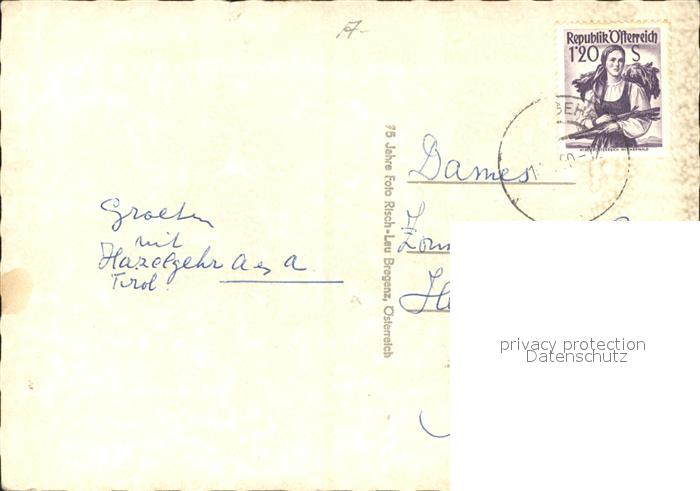 Republik Österreich
1'20 S
75 Jahre Foto Risch-Lau Bregenz, Österreich
Dames
Groeten
uit
Häselgehr A & A
Tirol
privacy protection
Datenschutz